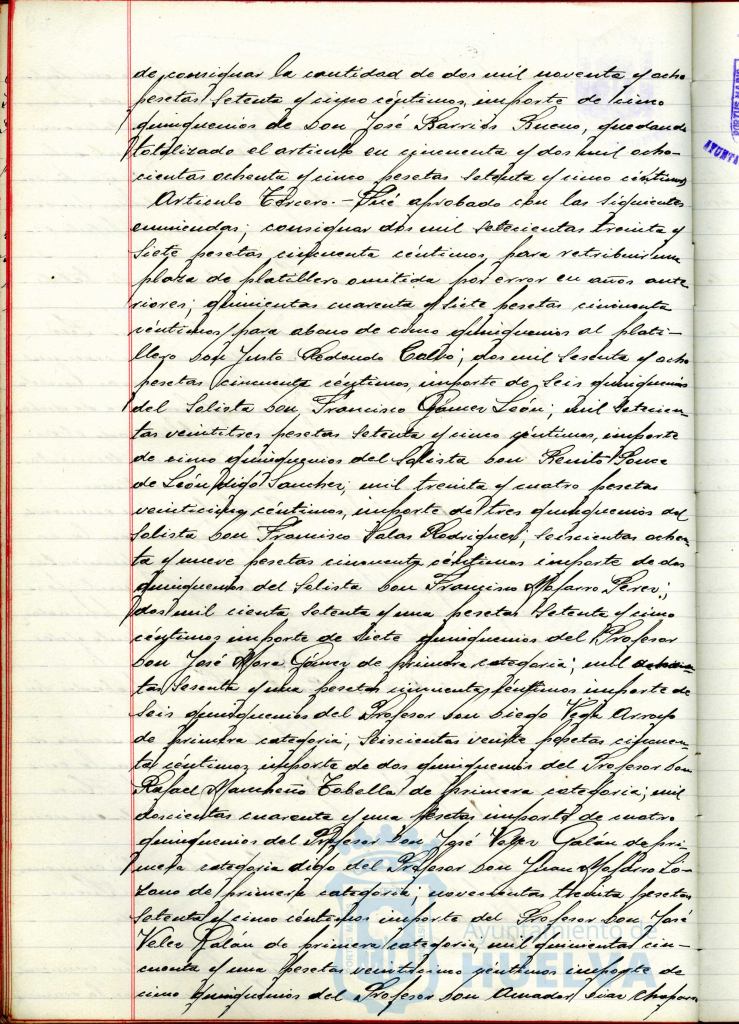 de consignar la cantidad de dos mil noventa y ocho
pesetas setenta y cinco céntimos, importe de cinco
quinquenios de Don José Barrios Bueno, quedando
totalizado el articulo en cincuenta y dos mil ocho-
cientas ochenta y cinco pesetas setenta y cinco céntimos
Articulo Tercero.- Fué aprobado con las siguientes
enmiendas; consignar dos mil setecientas treinta y
siete pesetas cincuenta céntimos, para retribuir una
plaza de platillero omitida por error en años ante-
riores; quinientas cuarenta y siete pesetas cincuenta
céntimos, para abono de cinco quinquenios al plati-
llero Don Justo Redondo Calvo; dos mil sesenta y ocho
pesetas cincuenta céntimos, importe de seis quinquenios
del Solista Don Francisco Gómez León; mil setecien-
tas veintitres pesetas setenta y cinco céntimos, importe
de cinco quinquenios del Solista Don Benito Ponce
de León digo Sanchez; mil treinta y cuatro pesetas
veinticinco céntimos, importe de tres quinquenios del
Solista Don Francisco Salas Rodriguez; seiscientas ochen-
ta y nueve pesetas cincuenta céntimos importe de dos
quinquenios del Solista Don Francisco Mojarro Perez;
dos mil cienta setenta y una pesetas setenta y cinco
céntimos importe de siete quinquenios del Profesor
Don José Mora Gómez de primera categoria; mil ochocien-
tas sesenta y una pesetas cincuenta céntimos importe de
seis quinquenios del Profesor Don Diego Vega Arroyo
de primera categoria; seiscientas veinte pesetas cincuen-
ta céntimos importe de dos quinquenios del Profesor Don
Rafael Tobella de primera categoria; mil
doscientas cuarenta y una pesetas importe de cuatro
quinquenios del Profesor Don José Velez Galán de pri-
mera categoria digo del Profesor Don Juan Mojarro Lo-
zano de primera categoria; novecientas treinta pesetas
setenta y cinco céntimos importe del Profesor Don José
Velez Galán de primera categoria, mil quinientas cin-
cuenta y una pesetas veinticinco céntimos importe de
cinco quinquenios del Profesor Don Amador Diaz
Ayuntamiento de
HUELVA